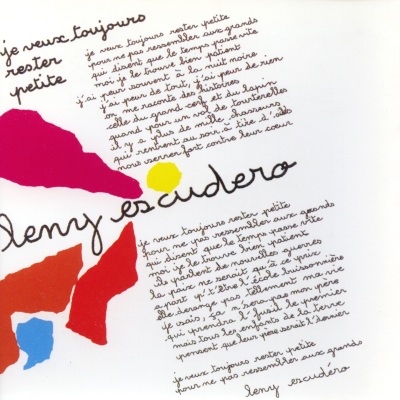 je veux toujours
rester
petite
je veux toujours rester petite
pour ne pas ressembler aux grands
qui disent que le temps passe vite
moi je le trouve bien patient
j'ai peur souvent à la nuit noire
j'ai peur de tout, j'ai peur de rien
on me raconte des histoires
celle du grand cerf et du lapin
quand pour un vol de tourterelles
il y a plus de mille chasseurs
qui rentrent au soir à tire d'
nous serrer fort contre leur cœur
leny escudero
je veux toujours rester petite
pour ne pas ressembler aux grands
qui disent que le temps passe vite
moi je le trouve bien patient
ils parlent de nouvelles guerres
la paix ne serait qu'à ce prix
a part qu't'être l'école buissonnière
elle dérange pas tellement ma vie
je sais, ça n'sera pas mon père
qui prendra l'fusil le premier
mais tous les enfants de la terre
pensent que leur père serait l'dernier
je veux toujours rester petite
pour ne pas ressembler aux grands
leny escudéro